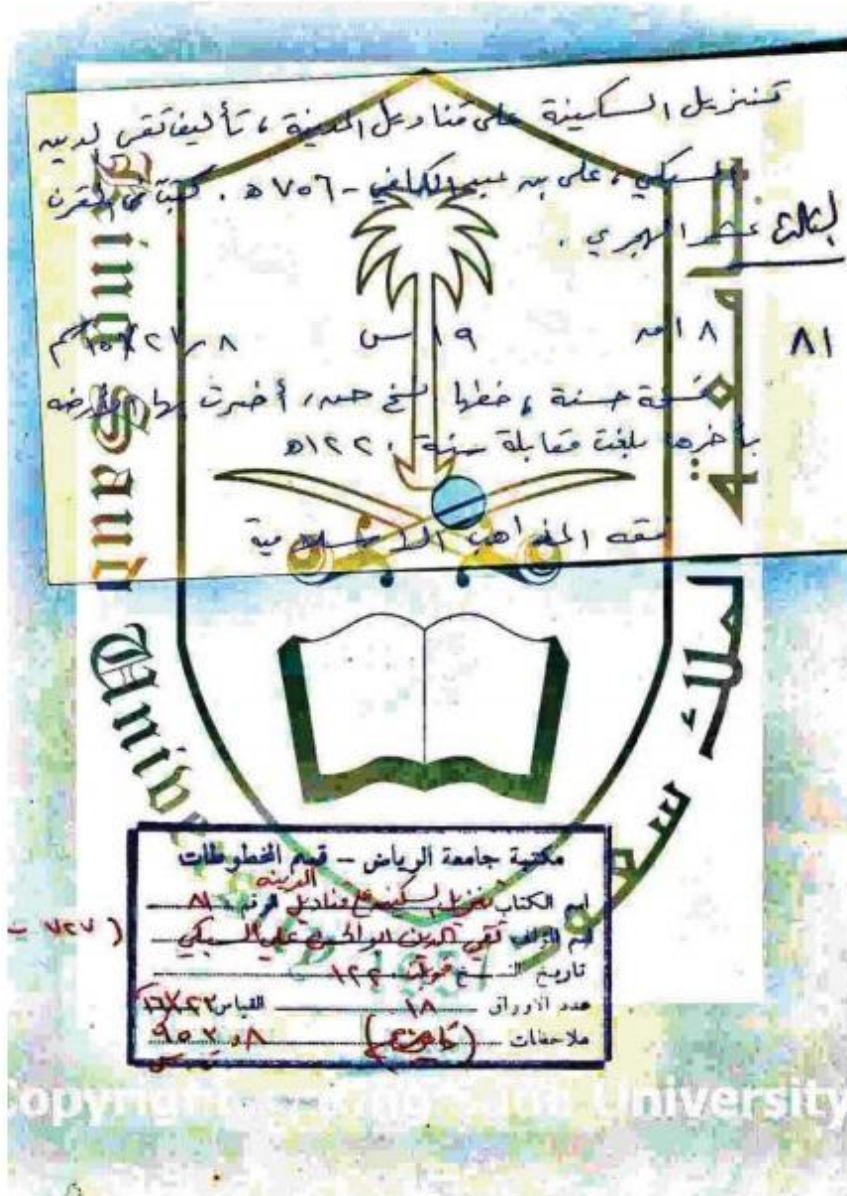 تنزيل السكينة على قناديل المدينة ، تأليف تقي الدين
السبكي ، علي بن عبد الكافي - ٧٥٦ ه . كتبت في القرن
الثالث عشر الهجري .
٨١ ١٨ ١٩ س
نسخة حسنة ، خطها نسخ حسن ،
بآخرها بلغت مقابلة سنة ١٢٢٠ه
فقه المذاهب الاسلامية
King Saud University
جامعة الملك سعود
1957
مكتبة جامعة الرياض – قسم المخطوطات
اسم الكتاب تنزيل السكينة على قناديل المدينه الرقم ٨١
اسم المؤلف تقي الدين ابو الحسن علي السبكي
تاريخ النسخ قوبلت ١٢٢٠
عدد الأوراق ١٨ القياس
ملاحظات
Copyright © King Saud University